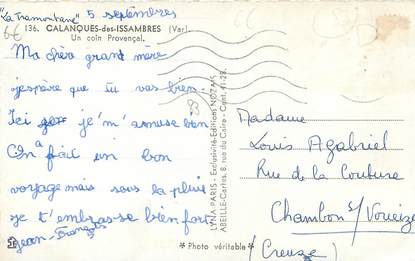 "La Tramontane" 5 septembres
6€ 136. CALANQUES-des-ISSAMBRES (Var)
Un coin Provençal.
Ma chère grand mère
j'espère que tu vas bien.
Ici je m'amuse bien
On a fait un bon
voyage mais sous la pluie
je t'embras-se bien fort
Jean-François
LYNA-PARIS - Exclusivité-Editions NOZAIS
ABEILLE-Cartes, 8, rue du Caire - Cent. 41-28.
83
* Photo véritable *
Madame
Louis Agabriel
Rue de la Couture
Chambon s/ Voueize
(Creuse)